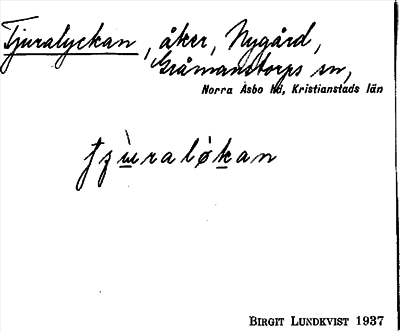 Tjuralyckan, åker, Nygård,
Gråmanstorps sn,
Norra Åsbo hd, Kristianstads län
tjùraløkan
BIRGIT LUNDKVIST 1937